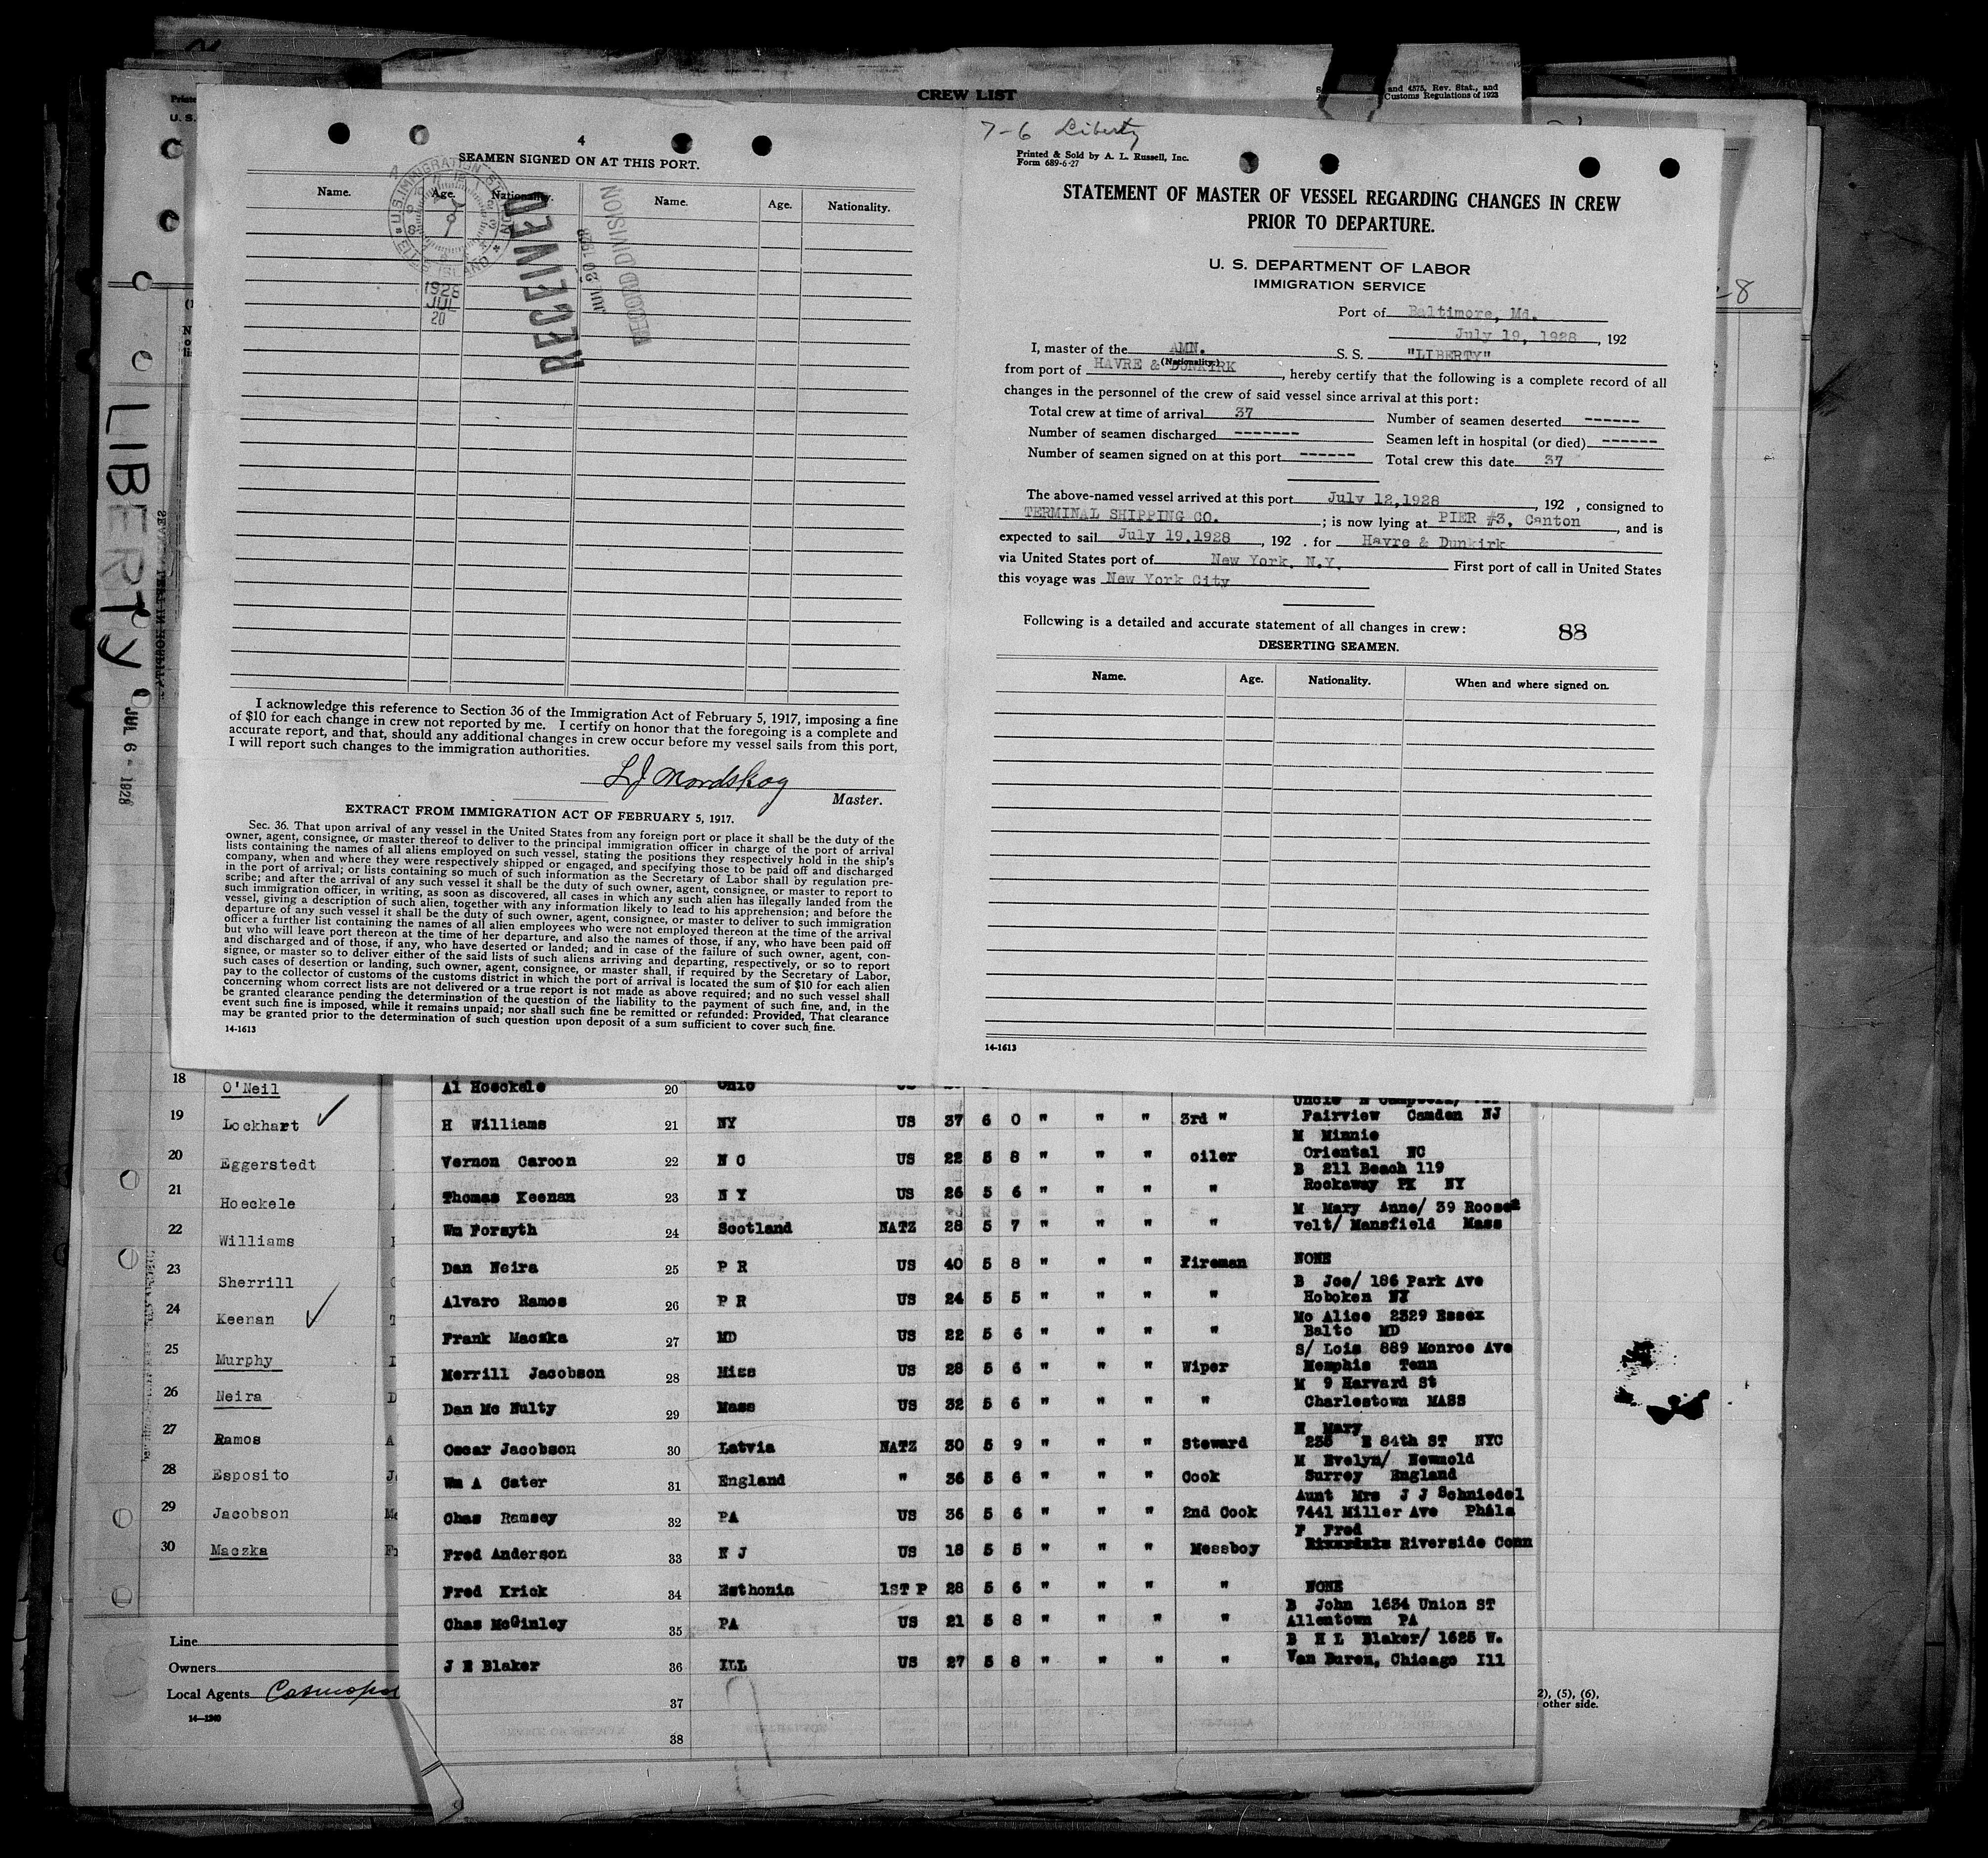 CREW LIST
and 4575, Rev. Stat., and
Customs Regulations of 1923
4
SEAMEN SIGNED ON AT THIS PORT.
Name. Age. Nationality. Name. Age. Nationality.
U.S. IMMIGRATION STATION
ELLIS ISLAND
1928
JUL
20
RECEIVED
JUL 20 1928
RECORD DIVISION
I acknowledge this reference to Section 36 of the Immigration Act of February 5, 1917, imposing a fine
of $10 for each change in crew not reported by me. I certify on honor that the foregoing is a complete and
accurate report, and that, should any additional changes in crew occur before my vessel sails from this port,
I will report such changes to the immigration authorities.
L J Nordskog
Master.
EXTRACT FROM IMMIGRATION ACT OF FEBRUARY 5, 1917.
Sec. 36. That upon arrival of any vessel in the United States from any foreign port or place it shall be the duty of the
owner, agent, consignee, or master thereof to deliver to the principal immigration officer in charge of the port of arrival
lists containing the names of all aliens employed on such vessel, stating the positions they respectively hold in the ship's
company, when and where they were respectively shipped or engaged, and specifying those to be paid off and discharged
in the port of arrival; or lists containing so much of such information as the Secretary of Labor shall by regulation pre-
scribe; and after the arrival of any such vessel it shall be the duty of such owner, agent, consignee, or master to report to
such immigration officer, in writing, as soon as discovered, all cases in which any such alien has illegally landed from the
vessel, giving a description of such alien, together with any information likely to lead to his apprehension; and before the
departure of any such vessel it shall be the duty of such owner, agent, consignee, or master to deliver to such immigration
officer a further list containing the names of all alien employees who were not employed thereon at the time of the arrival
but who will leave port thereon at the time of her departure, and also the names of those, if any, who have been paid off
and discharged and of those, if any, who have deserted or landed; and in case of the failure of such owner, agent, con-
signee, or master so to deliver either of the said lists of such aliens arriving and departing, respectively, or so to report
such cases of desertion or landing, such owner, agent, consignee, or master shall, if required by the Secretary of Labor,
pay to the collector of customs of the customs district in which the port of arrival is located the sum of $10 for each alien
concerning whom correct lists are not delivered or a true report is not made as above required; and no such vessel shall
be granted clearance pending the determination of the question of the liability to the payment of such fine, and, in the
event such fine is imposed, while it remains unpaid; nor shall such fine be remitted or refunded: Provided, That clearance
may be granted prior to the determination of such question upon deposit of a sum sufficient to cover such fine.
14-1613
7-6 Liberty
Printed & Sold by A. L. Russell, Inc.
Form 689-6-27
STATEMENT OF MASTER OF VESSEL REGARDING CHANGES IN CREW
PRIOR TO DEPARTURE.
U. S. DEPARTMENT OF LABOR
IMMIGRATION SERVICE
Port of Baltimore, Md.
July 19, 1928, 192
I, master of the AMN. S. S. "LIBERTY"
(Nationality.)
from port of HAVRE & DUNKIRK, hereby certify that the following is a complete record of all
changes in the personnel of the crew of said vessel since arrival at this port:
Total crew at time of arrival 37 Number of seamen deserted ------
Number of seamen discharged ------- Seamen left in hospital (or died) ------
Number of seamen signed on at this port ------ Total crew this date 37
The above-named vessel arrived at this port July 12,1928, 192 , consigned to
TERMINAL SHIPPING CO. ; is now lying at PIER #3, Canton, and is
expected to sail July 19,1928, 192 . for Havre & Dunkirk
via United States port of New York, N.Y. First port of call in United States
this voyage was New York City
Following is a detailed and accurate statement of all changes in crew:
88
DESERTING SEAMEN.
Name. Age. Nationality. When and where signed on.
14-1613
LIBERTY
JUL 6 - 1928
18 O'Neil
19 Lockhart
20 Eggerstedt
21 Hoeckele
22 Williams
23 Sherrill
24 Keenan
25 Murphy
26 Neira
27 Ramos
28 Esposito
29 Jacobson
30 Maczka
Line
Owners
Local Agents Cosmopol
14-1240
Al Hoeckele 20 Ohio
H Williams 21 NY US 37 6 0 " " " 3rd " Fairview Camden NJ
M Minnie
Vernon Caroon 22 N C US 22 5 8 " " " oiler Oriental NC
B 211 Beach 119
Thomas Keenan 23 N Y US 26 5 6 " " " " Rockaway PK NY
M Mary Anne/ 39 Roose
Wm Forsyth 24 Scotland NATZ 28 5 7 " " " " velt/ Mansfield Mass
Dan Neira 25 P R US 40 5 8 " " " Fireman NONE
B Joe/ 186 Park Ave
Alvaro Ramos 26 P R US 24 5 5 " " " " Hoboken NJ
Mo Alice 2329 Essex
Frank Maczka 27 MD US 22 5 6 " " " " Balto MD
S/ Lois 889 Monroe Ave
Merrill Jacobson 28 Miss US 28 5 6 " " " Wiper Memphis Tenn
M 9 Harvard St
Dan Mc Nulty 29 Mass US 32 5 6 " " " " Charlestown MASS
Mary
Oscar Jacobson 30 Latvia NATZ 30 5 9 " " " Steward 235 E 84th ST NYC
M Evelyn/ Newnold
Wm A Cater 31 England " 36 5 6 " " " Cook Surrey England
Aunt Mrs J J Schniedel
Chas Ramsey 32 PA US 36 5 6 " " " 2nd Cook 7441 Miller Ave Phila
F Fred
Fred Anderson 33 N J US 18 5 5 " " " Messboy Riverside Conn
Fred Krick 34 Esthonia 1ST P 28 5 6 " " " " NONE
B John 1634 Union ST
Chas McGinley 35 PA US 21 5 8 " " " " Allentown PA
B H L Blaker/ 1625 W.
J E Blaker 36 ILL US 27 5 8 " " " " Van Buren, Chicago Ill
37
38
2), (5), (6),
other side.